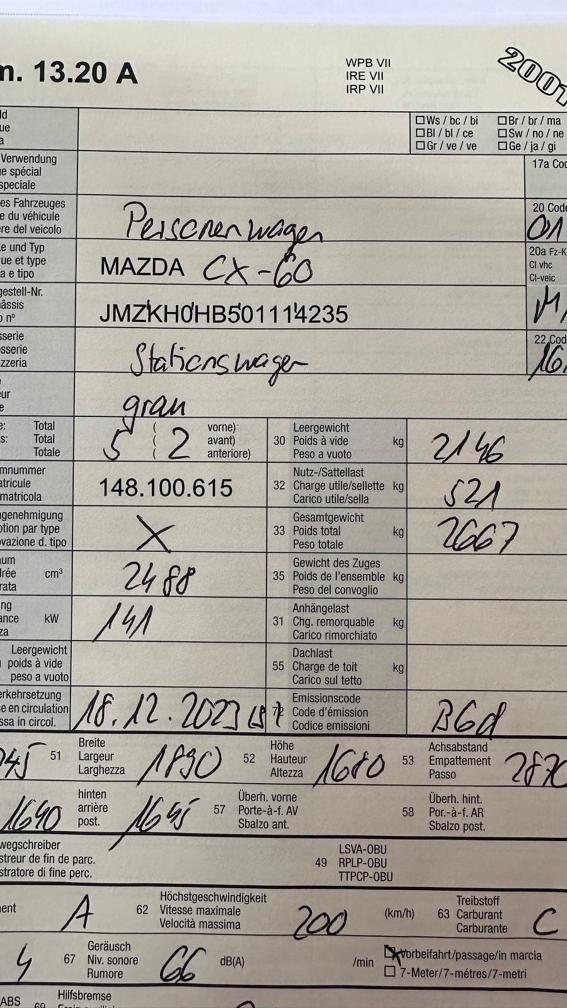 m. 13.20 A
WPB VII
IRE VII
IRP VII
2001
ld
ue
a
☐ Ws / bc / bi ☐ Br / br / ma
☐ Bl / bl / ce ☐ Sw / no / ne
☐ Gr / ve / ve ☐ Ge / ja / gi
Verwendung
ge spécial
speciale
17a Cod
es Fahrzeuges
e du véhicule
re del veicolo
Personenwagen
20 Code
01
e und Typ
ue et type
a e tipo
MAZDA CX-60
20a Fz-K
Cl vhc
Cl-veic
gestell-Nr.
hâssis
o n°
JMZKH0HB501114235
M
sserie
osserie
zzeria
Stationswagen
22 Cod
16
ur
e
grau
e: Total
s: Total
Totale
5 ( 2 vorne)
avant)
anteriore)
30 Leergewicht
Poids à vide
Peso a vuoto
kg
2146
mnummer
tricule
matricola
148.100.615
32 Nutz-/Sattellast
Charge utile/sellette
Carico utile/sella
kg
521
ngenehmigung
tion par type
vazione d. tipo
X
33 Gesamtgewicht
Poids total
Peso totale
kg
2667
um
drée
rata
cm³
2488
35 Gewicht des Zuges
Poids de l'ensemble
Peso del convoglio
kg
ng
ance
za
kW
141
31 Anhängelast
Chg. remorquable
Carico rimorchiato
kg
Leergewicht
poids à vide
peso a vuoto
55 Dachlast
Charge de toit
Carico sul tetto
kg
erkehrsetzung
e en circulation
ssa in circol.
18.12.2023
72 Emissionscode
Code d'émission
Codice emissioni
B6d
45
51 Breite
Largeur
Larghezza
1890
52 Höhe
Hauteur
Altezza
1680
53 Achsabstand
Empattement
Passo
2870
1640
hinten
arrière
post.
1645
57 Überh. vorne
Porte-à-f. AV
Sbalzo ant.
58 Überh. hint.
Por.-à-f. AR
Sbalzo post.
wegschreiber
streur de fin de parc.
stratore di fine perc.
49 LSVA-OBU
RPLP-OBU
TTPCP-OBU
ent
A
62 Höchstgeschwindigkeit
Vitesse maximale
Velocità massima
200
(km/h)
63 Treibstoff
Carburant
Carburante
C
4
67 Geräusch
Niv. sonore
Rumore
66
dB(A)
/min
☒ Vorbeifahrt/passage/in marcia
☐ 7-Meter/7-métres/7-metri
ABS 69 Hilfsbremse